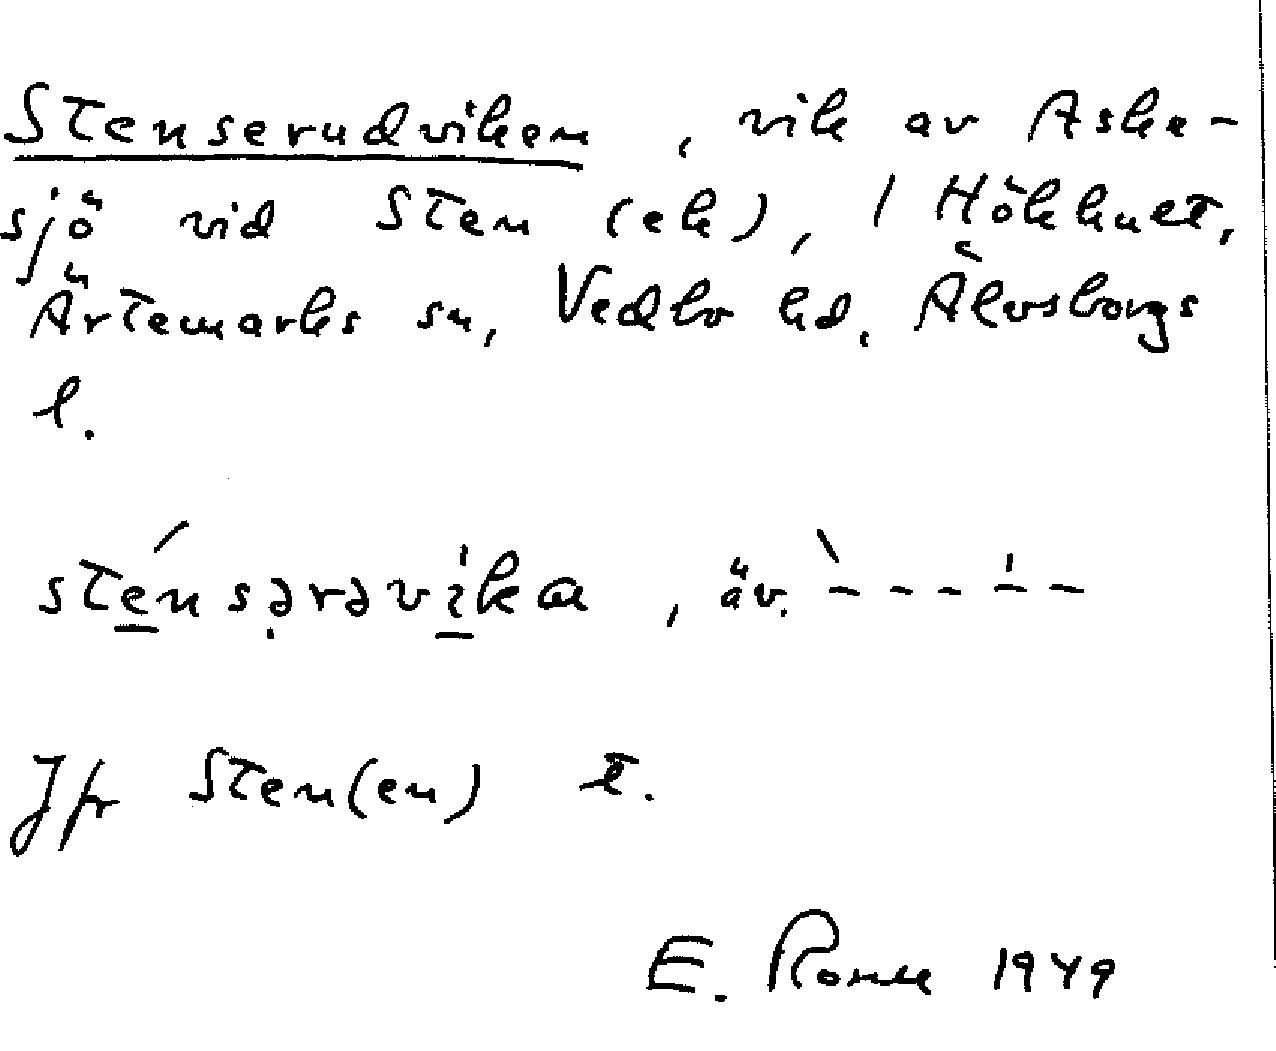 Stenserudviken, vik av Aske-
sjö vid Sten (ek), 1 Hökhult,
Ärtemarks sn, Vedbo hd. Älvsborgs
l.
sténsərəvika, äv. ` - - - ' - -
Jfr Sten(en) t.
E. 1949